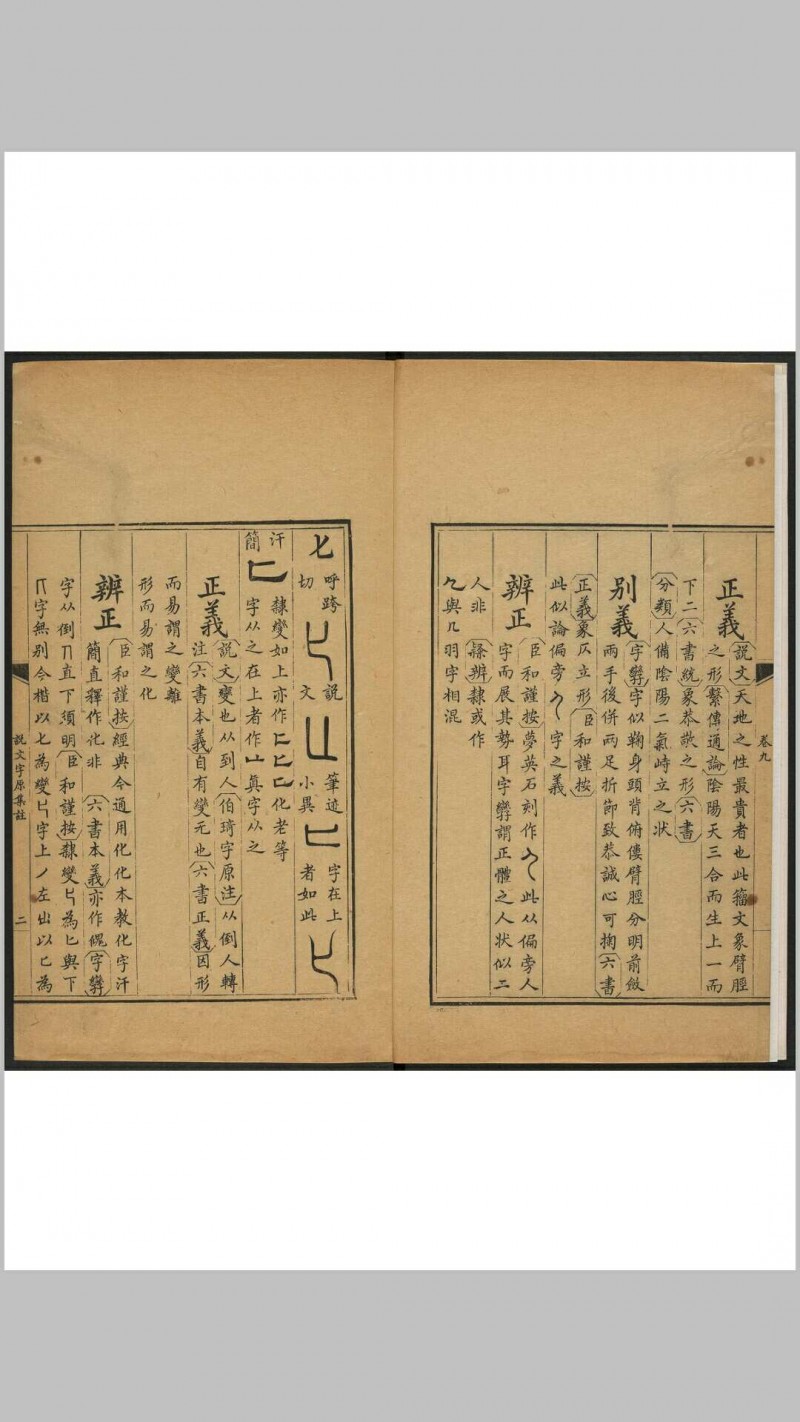 正義
說文天地之性最貴者也此籒文象臂脛
之形繫傳通論陰陽天三合而生上一而
下二六書統象恭敬之形六書
分類人備陰陽二氣峙立之状
别義
字孿字似鞠身頭背俯僂臂脛分明前斂
兩手後併兩足折節致恭誠心可掬六書
正義象仄立形臣和謹按
此似論偏旁字之義
辨正
臣和謹按夢英石刻作此从偏旁人
字而展其勢耳字孿謂正體之人状似二
人非 繇辨隸或作
與几羽字相混
卷九
𠤎
呼跨
切
說
文
筆迹
小異
字在上
者如此
汗
簡
隸變如上亦作化老等
字从之在上者作真字从之
正義
說文變也从到人伯琦字原注从倒人轉
注六書本義自有變无也六書正義因形
而易謂之變離
形而易謂之化
辨正
臣和謹按經典今通用化化本教化字汗
簡直釋作化非 六書本義亦作傀字孿
字从倒直下須明臣和謹按隸變為匕與下
字無别今楷以七為變字上丿左出以匕為
說文字原集註
二